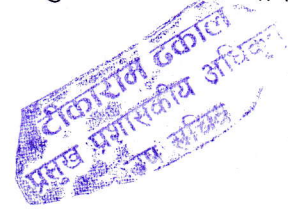 टीकाराम ढकाल
प्रमुख प्रशासकीय अधिकृत
उप सचिव